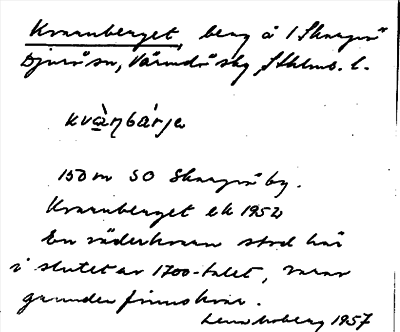 Kvarnberget, berg å 1 Skarpö
Djurö sn, Värmdö sky Sthlms. l.
kvàɳbárja
150 m SO Skarpö by.
Kvarnberget ek 1952
En väderkvarn stod här
i slutet av 1700-talet, varav
grunden finns kvar.
1957